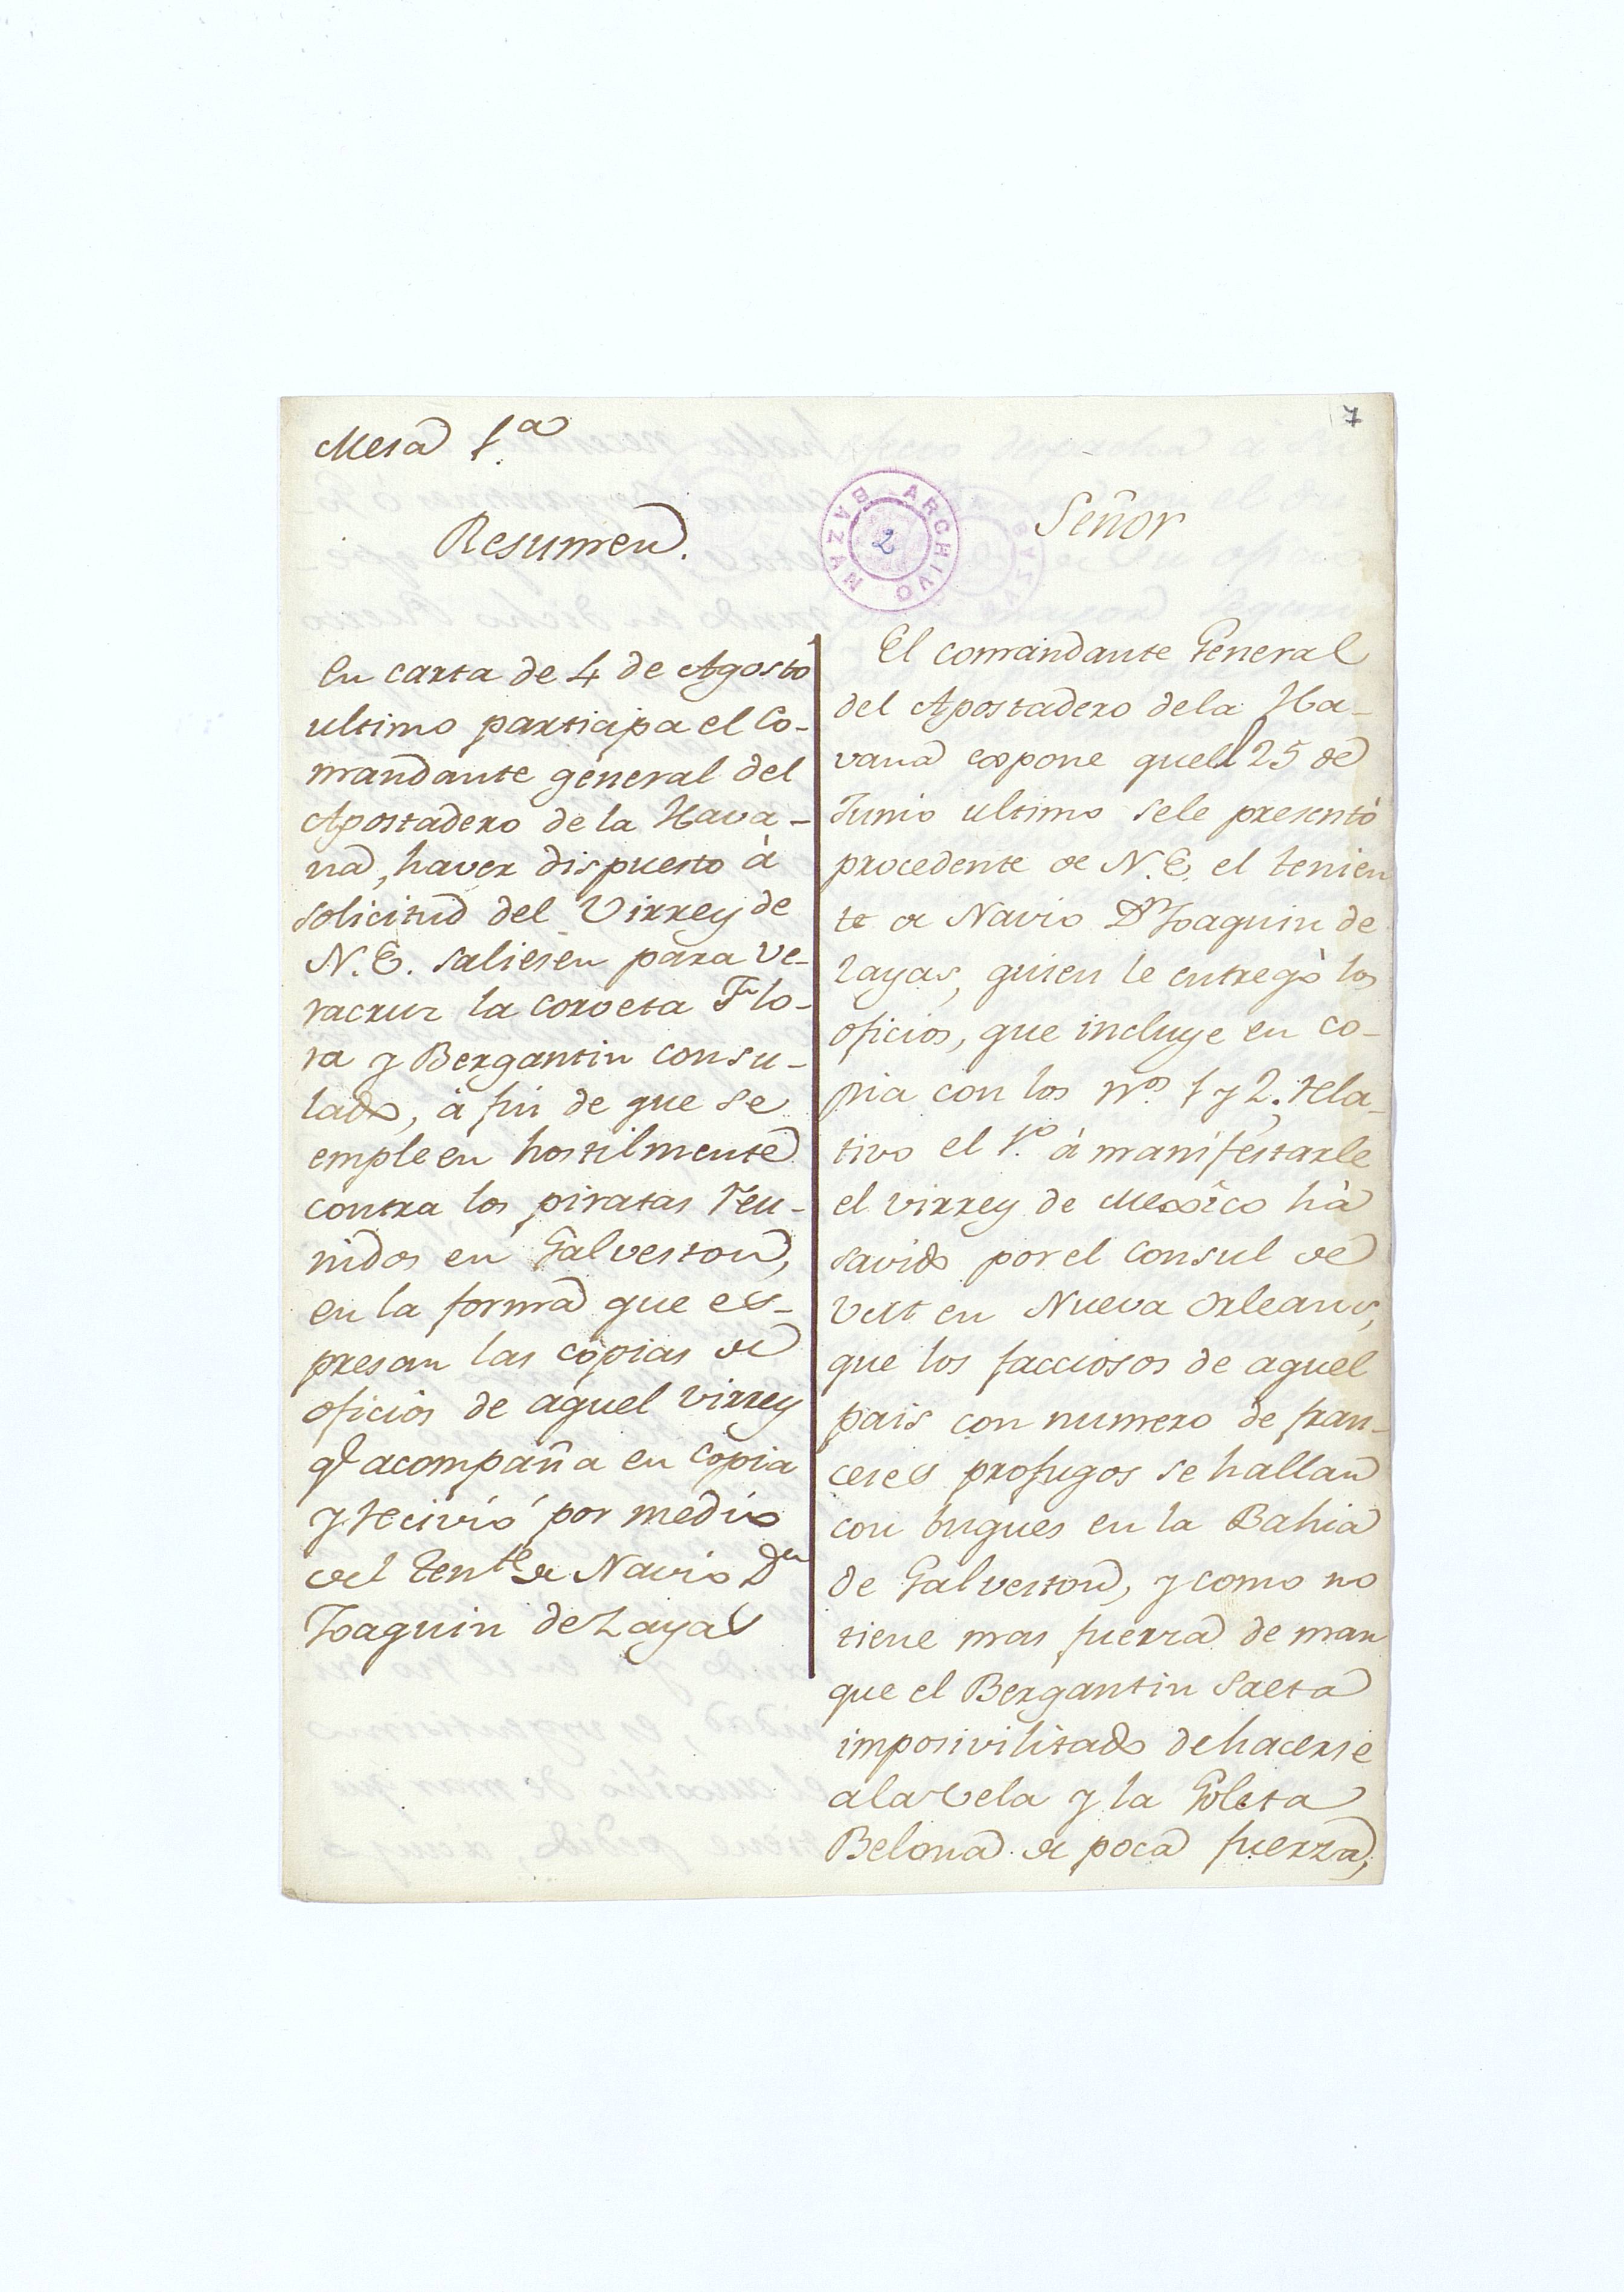 7
Mesa 1.ª
Resumen.
En carta de 4 de Agosto
ultimo participa el Co-
mandante general del
Apostadero de la Hava-
na, haver dispuesto à
solicitud del Virrey de
N.E. saliesen para Ve-
racruz la corveta Flo-
ra y Bergantin consu-
lado, à fin de que se
empleen hostilmente
contra los piratas reu-
nidos en Galveston,
en la forma que es-
presan las copias de
oficios de aquel virrey
qe acompaña en copia
y recivió por medio
del Tente de Navio Dn
Joaquin de Layas
ARCHIVO BAZAN
2
Señor
El comandante General
del Apostadero dela Ha-
vana expone quel 25 de
Junio ultimo sele presentó
procedente de N.E. el tenien
te de Navio Dn Joaquin de
Layas, quien le entregò los
oficios, que incluye en co-
pia con los nos 1 y 2. rela-
tivo el 1.º à manifestarle
el virrey de Mexîco hà
savido por el Consul de
en Nueva Orleans,
que los facciosos de aquel
pais con numero de fran-
ceses profugos se hallan
con buques en la Bahia
de Galveston, y como no
tiene mas fuerza de mar
que el Bergantin Saeta
imposivilitado de hacerse
ala vela y la Goleta
Belona de poca fuerza,